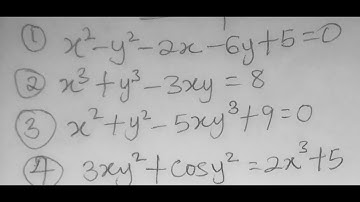 ① x² - y² - 2x - 6y + 5 = 0
② x³ + y³ - 3xy = 8
③ x² + y² - 5xy³ + 9 = 0
④ 3xy² + cosy² = 2x³ + 5